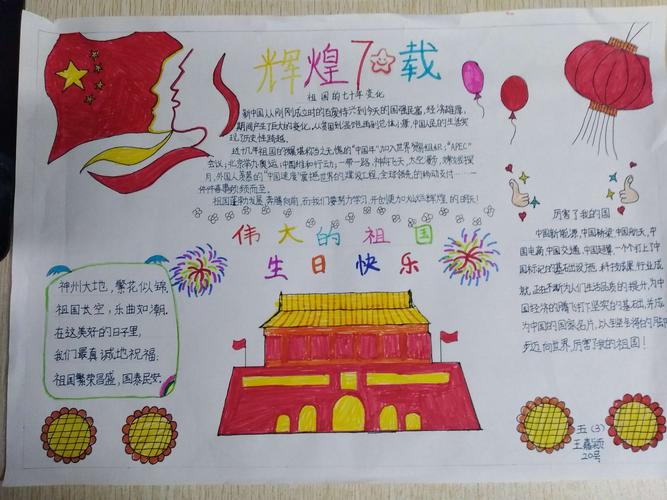 辉煌70载
祖国的七十年变化
新中国从刚刚成立时的百废待兴到今天的国强民富，经济雄厚，
期间产生了巨大的变化，从贫困到温饱再到总体小康，中国人民的生活实
现历史性跨越。
这十几年祖国的
"中国年"加入世界
"APEC"
会议；北京举办奥运，中国维和行动，一带一路，神舟飞天，太空
月，外国人
"中国速度"
世界的建设工程，全球领先的移动支付……
件件喜事
祖国蓬勃发展 奔腾向前，而我们要努力学习，开创更加
辉煌的明天！
伟大的祖国
生日快乐
神州大地，繁花似锦，
祖国长空，乐曲如潮。
在这美好的日子里，
我们最真诚地祝福：
祖国繁荣昌盛，国泰民安。
厉害了我的国
中国新能源，中国桥梁，中国航天，中
国电商，中国交通，中国
一个个打上了中
国标记的基础设施，科技成果，行业成
就，正在不断为人们生活服务的提升，为中
国经济的腾飞打下坚实的基础，并成
为中国的国家名片，以坚
步迈向世界，厉害了我的祖国！
五（3）
王嘉颖
20号